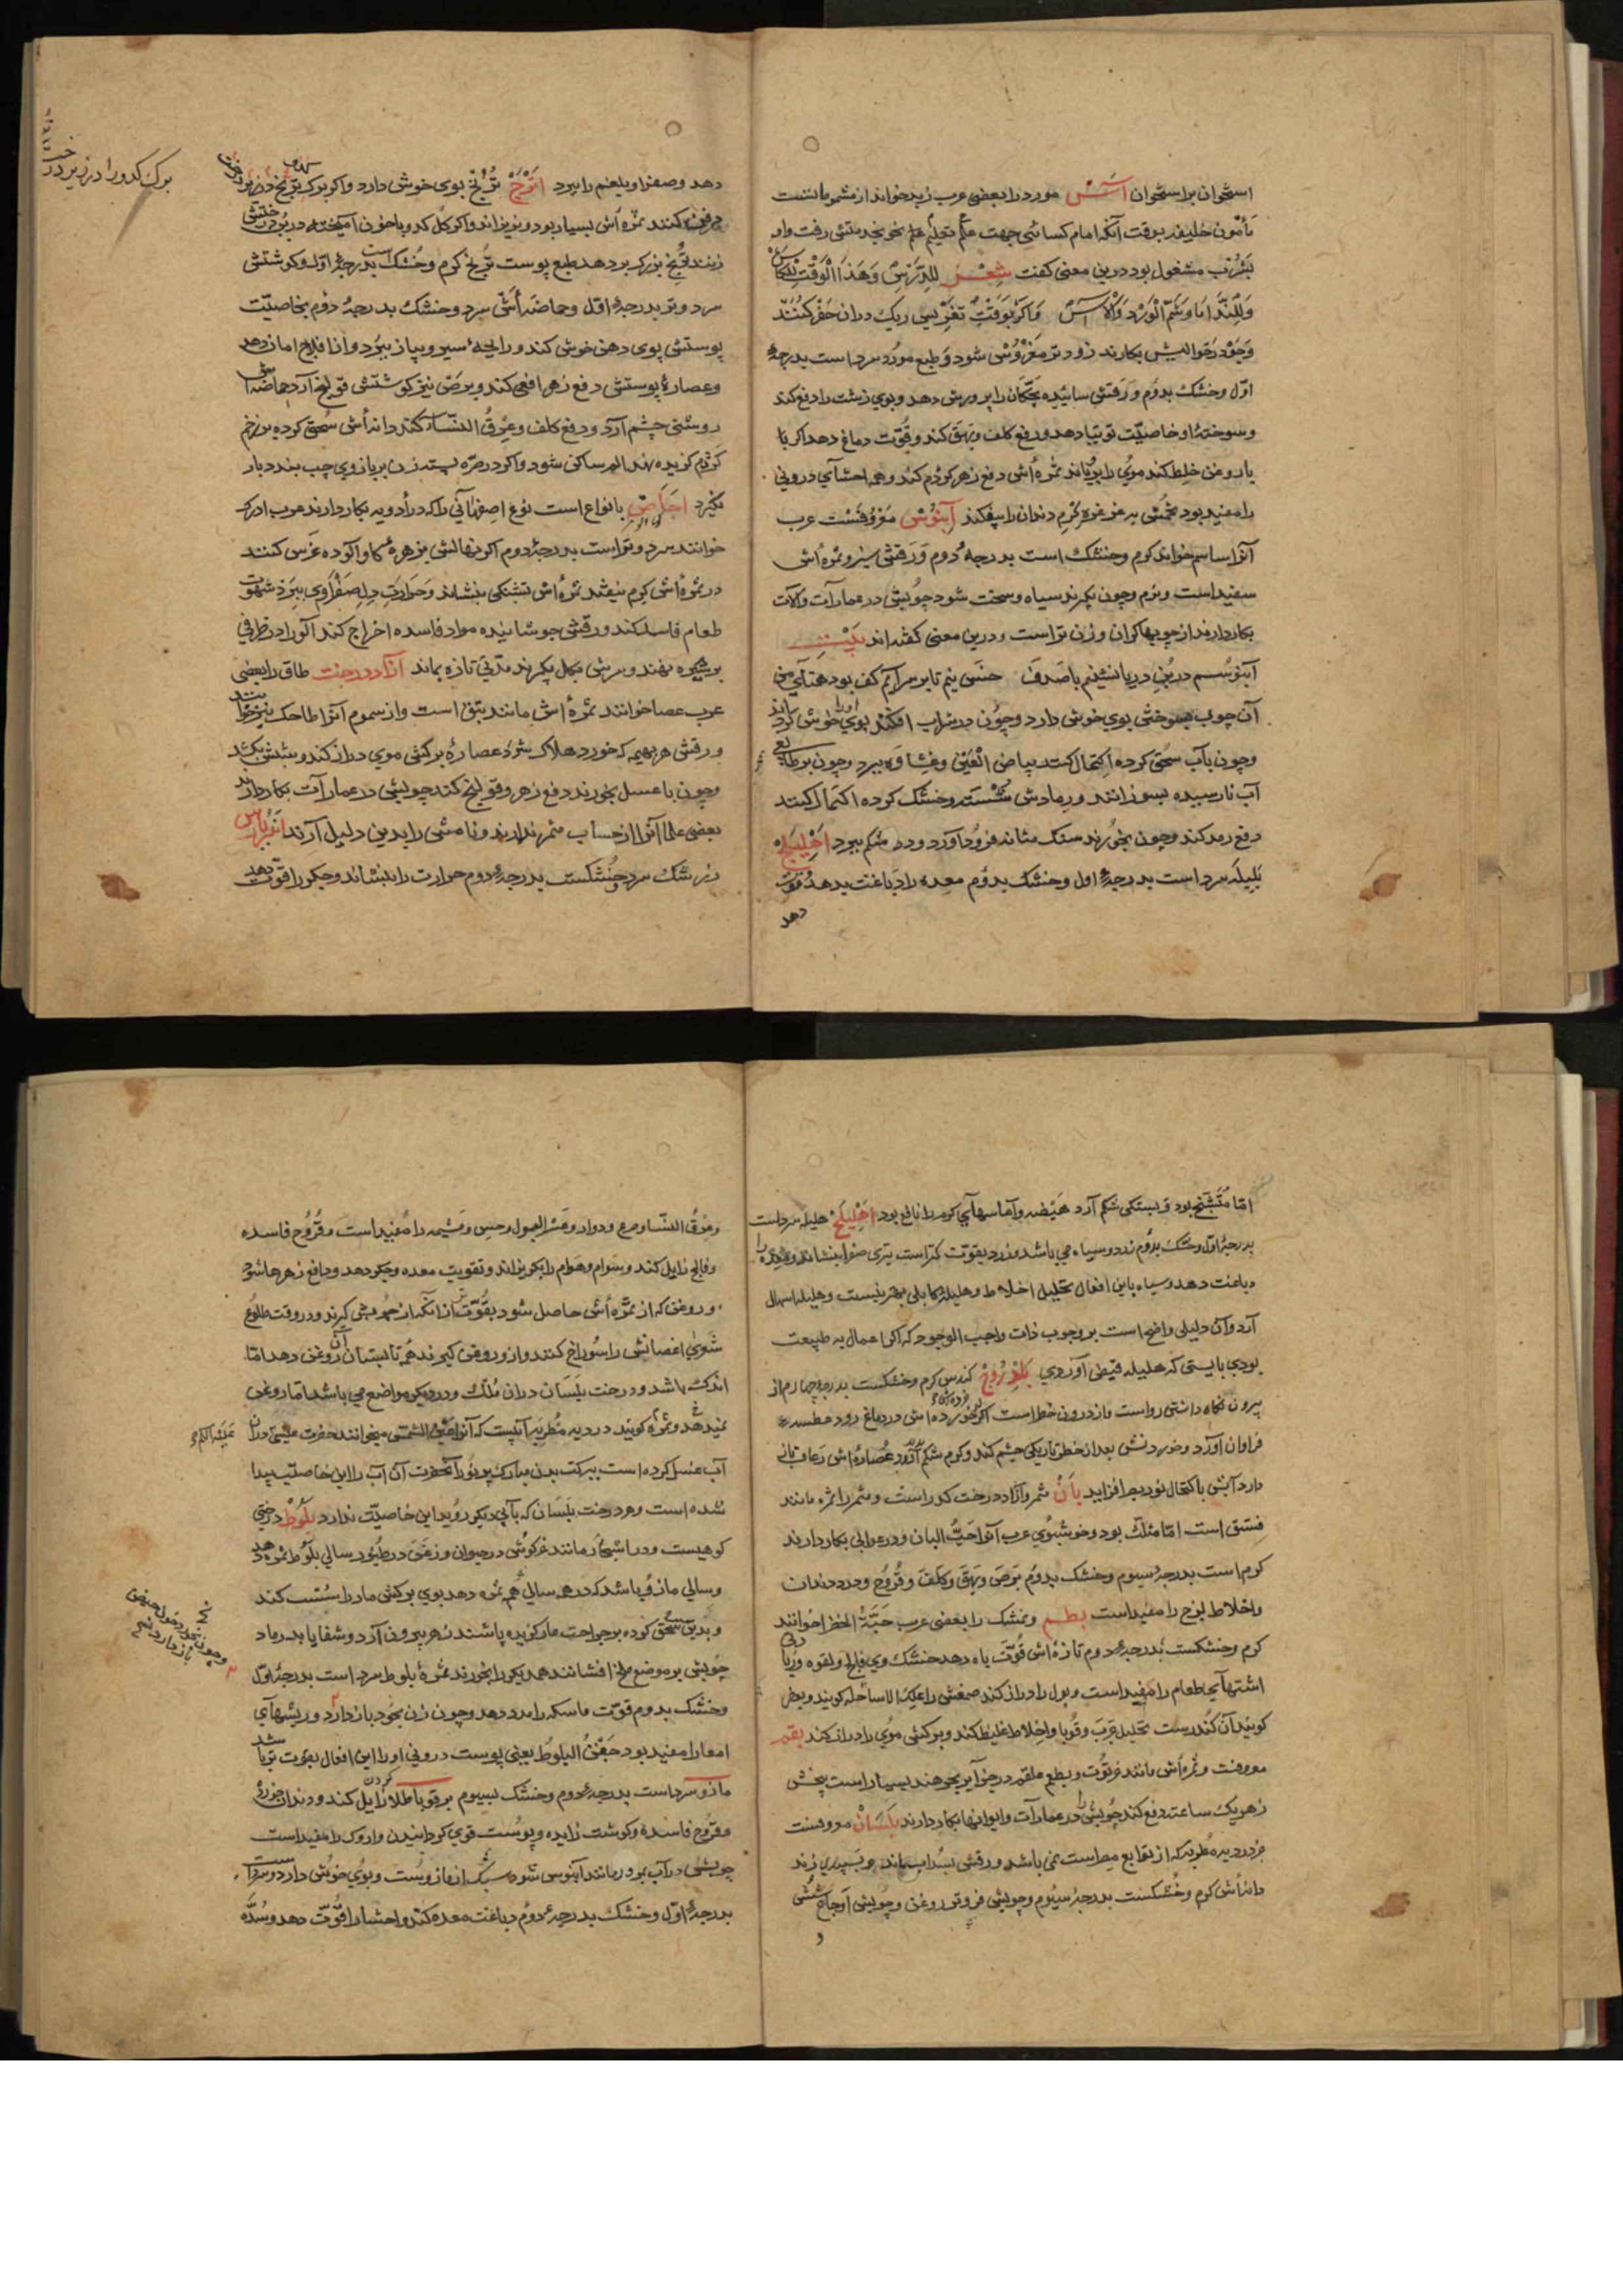 استخوان بر استخوان آس مورد را بعضی عرب رند خوانند از مشموماتست
مأمون خلیفه بوقت آنکه امام کسائی جهت علم تعلیم علم نحو نجد متش رفت واو
بشرب مشغول بود درین معنی کفت شعر للدرس وهذا الوقت للکاس
وللندا ما وشم الورد والاس واکر بوقت تغریس ریک دران حفر کنند
وجو در حوالیش بکارند زودتر مغروس شود وطبع مورد سرد است بدرجهٔ
اول وخشک بدوم ورقش سائیده بچکان را پرورش دهد وبوی زشت را دفع کند
وسوختهٔ او خاصیت توتیا دهد ورفع کلف وبهق کند وقوت دماغ دهد اکر با
با روغن خلط کند موی را برویاند ثمره اش دفع زهر کژدم کند وهمه احشای درونی
را مفید بود تخمش به غرغره کرم دندان را بیفکند آبنوس معروفست عرب
آنرا ساسم خواند کرم وخشک است بدرجهٔ دوم ورقش سبز وثمره اش
سفید است ونرم وچون بکیرند سیاه وسخت شود چوبش در عمارات وآلات
بکار دارند از چوبها کران وزن تر است ودرین معنی کفته اند بیت
آبنوسم در بن دریا نشینم با صدف خس نیم تا بر سر آیم کف بود همتای من
آن چوب بسوختن بوی خوش دارد وچون در شراب افکند بوی او را خوش کرداند
وچون بآب سحق کرده اکتحال کنند بیاض العین وغشاوه ببرد وچون بر طابعی
آب نارسیده بسوزانند ورمادش شسته وخشک کرده اکتحال کنند
دفع رمد کند وچون بخورند سنک مثانه فرود آورد ودرد شکم ببرد اهلیلج
بلیله سرد است بدرجهٔ اول وخشک بدوم معده را دباغت بدهد قوت
دهد
دهد وصفرا وبلغم را ببرد اترج ترنج بوی خوش دارد واکر برک ترنج در زیر درخت
دفن کنند ثمره اش بسیار بود ونریزاند واکر کل کدو با خون آمیخته در بن درختش
زینند ترنج بزرک بر دهد طبع پوست ترنج کرم وخشک است بدرجهٔ اول وکوشتش
سرد وتر بدرجهٔ اول وحماضه اش سرد وخشک بدرجهٔ دوم بخاصیت
پوستش بوی دهن خوش کند ورایحهٔ سیر وپیاز ببرد واز افلاج امان دهد
وعصارهٔ پوستش دفع زهر افعی کند وبرص نیز کوشتش قولنج آرد حماضه اش
روشنی چشم آرد ودفع کلف وعرق النسا کند دانه اش سحق کرده بر زخم
کژدم کزیده نهند الم ساکن شود واکر در صره بسته زن بر بازوی چپ بندد بار
نکیرد اجاص بانواع است نوع اصفهانی را که در ادویه بکار دارند عرب ادرک
خوانند سرد وتر است بدرجهٔ دوم اکر نهالش بزهرهٔ کاو آلوده غرس کنند
در ثمره اش کرم نیفتد ثمره اش تشنکی بنشاند وحرارت دل صفراوی ببرد شهوت
طعام فاسد کند ورقش جوشانیده مواد فاسده اخراج کند آلو را در ظرفی
بر شیره نهند وسرش بکل بکیرند مدتی تازه بماند آزاد درخت طاق را بعضی
عرب عصا خوانند ثمره اش مانند نبق است واز سموم آنرا طاحک نیز خوانند
ورقش هر بهیمه که خورد هلاک شود عصارهٔ برکش موی دراز کند وشپش بکشد
وچون با عسل بخورند دفع زهر وقولنج کند چوبش در عمارات بکار دارند
بعضی علما آنرا از حساب مثمر ندارند ونامش را بدین دلیل آرند انبرباریس
زرشک سرد وخشکست بدرجهٔ دوم حرارت را بنشاند وجکر را قوت دهد
برک کدو را در زیر درخت
اما متشنج بود وبستکی شکم آرد هیضه وآماسهای کرم را نافع بود اهلیلج هلیله سرد است
بدرجهٔ اول وخشک بدوم زرد وسیاه می باشد وزرد بقوت کمتر است تری صفرا بنشاند ومعده را
دباغت دهد وسیاه باین افعال تحلیل اخلاط وهلیله کابلی بهترینست وهلیله اسهال
آرد وآن دلیلی واضح است بر وجوب ذات واجب الوجود که اکر اعمال به طبیعت
بودی بایستی که هلیله قبض آوردی کندس کرم وخشکست بدرجهٔ چهارم از
بیرون نکاه داشتن رواست واز درون خطر است اکر خورده اش در دماغ رود عطسهٔ
فراوان آورد وخوردنش بعد از خطر تاریکی چشم کند وکرم شکم آورد عصاره اش رعاف باز
دارد آبش باکتحال نور بصر افزاید بان ثمر وآزاد درخت کدر است وثمر را ثمره مانند
فستق است اما مثلث بود وخوشبوی عرب آنرا حب البان ودر غوالی بکار دارند
کرم است بدرجهٔ سیوم وخشک بدوم برص وبهق وکلف وقروح ودرد دندان
واخلاط لزج را مفید است بطم ونشک را بعضی عرب حبة الخضرا خوانند
کرم وخشکست بدرجهٔ دوم تازه اش قوت باه دهد خشک وی فالج ولقوه وریاح
اشتهای طعام را مفید است وبول را دراز کند صمغش را علک الاساحله کویند وبعض
کویند آن کندرست تحلیل جرب وقوبا واخلاط غلیظ کند وبرکش موی را دراز کند بقم
معروفست وثمره اش مانند فرنوت وبطعم علقم در جزایر بحر هند بسیار است بیخش
زهر یک ساعته دفع کند چوبش را در عمارات وایوانها بکار دارند بلسان معروفست
جز در دیه مطریه که از توابع مصر است نمی باشد ورقش بسداب ماند وبسپیدی زند
دانه اش کرم وخشکست بدرجهٔ سیوم وچوبش فروتر وروغن وچوبش اوجاع شش
و
وعرق النسا وصرع ودوار وعسر البول وحبس ومشیمه را مفید است وقروح فاسده
وفالج زایل کند وسوام وهوام را بکریزاند وتقویت معده وجکر دهد ودافع زهرها شود
وروغن که از ثمره اش حاصل شود بقوت تر از آنکه از چوبش کیرند ودر وقت طلوع
شعری اغصانش را سوراخ کنند واز وروغن کیرند همه تابستان آن روغن دهد اما
اندک باشد ودرخت بلسان دران ملک ودر دیکر مواضع می باشد اما روغن
نمیدهد وثمره کویند در دیه مطریه آبیست که آنرا عین الشمس میخوانند حضرت عیسی دران
آب غسل کرده است ببرکت بدن مبارک پرنور آنحضرت آن آب را این خاصیت پیدا
شده است وهر درخت بلسان که بآبی دیکر روید این خاصیت ندارد بلوط درختی
کوهیست ودر اشجار مانند خرکوش در حیوان وزغن در طیور سالی بلوط ثمره دهد
وسالی مازو باشد که در هر سالی هم ثمره دهد بوی برکش مار را سست کند
وبدین سحق کرده بر جراحت مار کزیده پاشند زهر بیرون آرد وشفا یابد رماد
چوبش بر موضع ملخ افشانند همدیکر را بخورند ثمرهٔ بلوط سرد است بدرجهٔ اول
وخشک بدوم قوت ماسکه را مدد دهد وچون زن بخود باز دارد وریشهای
امعا را مفید بود جفت البلوط یعنی پوست درونی او را این افعال بقوت تر باشد
مازو سرد است بدرجهٔ دوم وخشک بسیوم بر قوبا طلا کردن زایل کند ودندان خورده
وقروح فاسده وکوشت زایده وپوست قوی کردانیدن واروک را مفید است
چوبش در آب بود ومانند آبنوس شود سبک از مازوست وبوی خوش دارد وسرد است
بدرجهٔ اول وخشک بدرجهٔ دوم دباغت معده کند واحشا را قوت دهد وسده
علیه السلام
وچون زن در خود
باز دارد